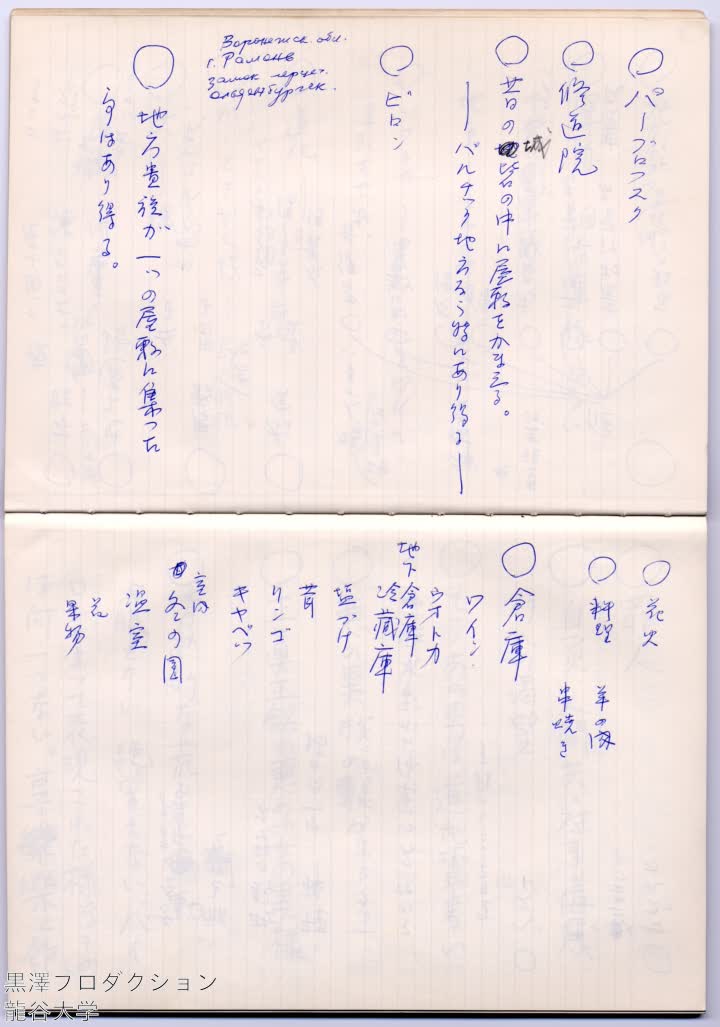 パーブロフスク
修道院
昔の城砦の中に屋敷をかまえる。
―バルチック地方なら特にあり得る―
ピロン
Воронежск. обл.
г. Рамонь
Замок
Ольденбургск.
地方貴族が一つの屋敷に集った
事はあり得る。
花火
料理 羊の肉
串焼き
倉庫
ワイン
ウオトカ
地下倉庫
冷蔵庫
塩づけ
茸
リンゴ
キャベツ
室内
冬の園
温室
花
果物
黒澤プロダクション
龍谷大学